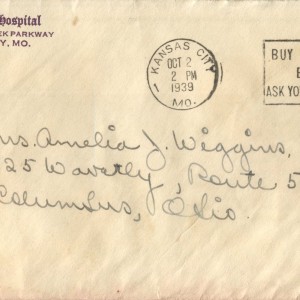 Hospital
EK PARKWAY
Y, MO.
KANSAS CITY
OCT 2
2 PM
1939
MO.
BUY
ASK YO
rs. Amelia J. Wiggins,
25 Waverly, Route 5
Columbus, Ohio.